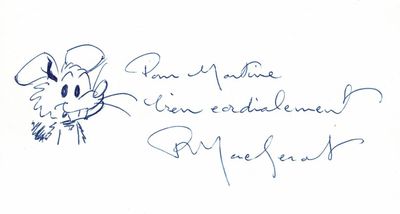 Pour Martine
bien cordialement
R Macherot